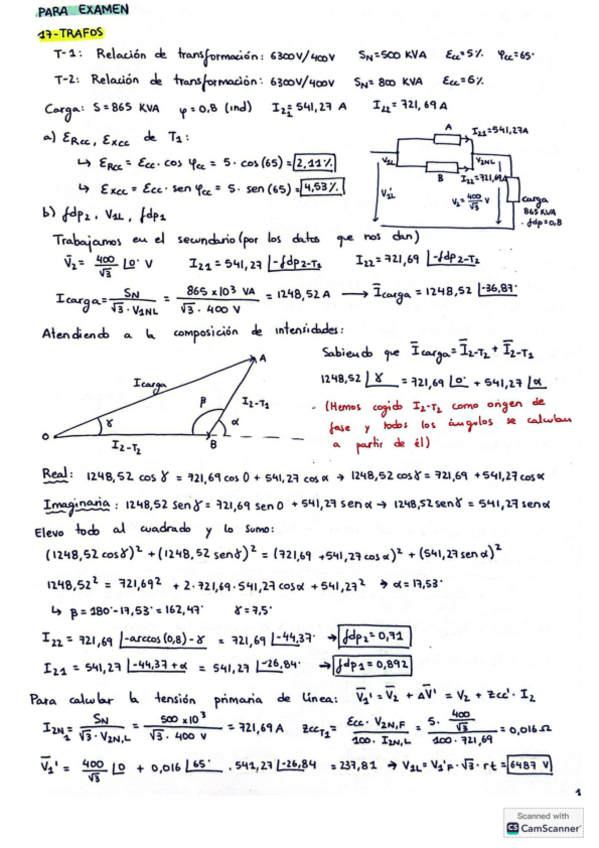 PARA EXAMEN
17-TRAFOS
T-1: Relación de transformación: 6300V/400V SN=500 KVA Ecc=5% φcc=65°
T-2: Relación de transformación: 6300V/400V SN=800 KVA Ecc=6%
Carga: S=865 KVA φ=0,8 (ind) I21=541,27 A I22=721,69 A
a) ERcc, EXcc de T1:
↳ ERcc = Ecc·cos φcc = 5·cos(65) = 2,11%
↳ EXcc = Ecc·sen φcc = 5·sen(65) = 4,53%
A I21=541,27A
V2L V2NL
B I22=721,69A
V1L' V2=400/√3 V
carga
865 KVA
·fdp=0,8
b) fdp2, V1L, fdp1
Trabajamos en el secundario (por los datos que nos dan)
V̄2 = 400/√3 |0° V I21 = 541,27 |-fdp2-T1 I22 = 721,69 |-fdp2-T2
Icarga = SN/(√3·V1NL) = 865×10³ VA/(√3·400 V) = 1248,52 A → Īcarga = 1248,52 |-36,87°
Atendiendo a la composición de intensidades:
A
Icarga
β I2-T1
γ α
O I2-T2 B
Sabiendo que Īcarga = Ī2-T2 + Ī2-T1
1248,52 |γ = 721,69 |0° + 541,27 |α
(Hemos cogido I2-T2 como origen de
fase y todos los ángulos se calculan
a partir de él)
Real: 1248,52 cos γ = 721,69 cos 0 + 541,27 cos α → 1248,52 cos γ = 721,69 + 541,27 cos α
Imaginaria: 1248,52 sen γ = 721,69 sen 0 + 541,27 sen α → 1248,52 sen γ = 541,27 sen α
Elevo todo al cuadrado y lo sumo:
(1248,52 cos γ)² + (1248,52 sen γ)² = (721,69 + 541,27 cos α)² + (541,27 sen α)²
1248,52² = 721,69² + 2·721,69·541,27 cos α + 541,27² → α = 17,53°
↳ β = 180° - 17,53° = 162,47° γ = 7,5°
I22 = 721,69 |-arccos(0,8) - γ = 721,69 |-44,37° → fdp2 = 0,71
I21 = 541,27 |-44,37 + α = 541,27 |-26,84° → fdp1 = 0,892
Para calcular la tensión primaria de línea: V̄1' = V̄2 + ΔV̄' = V2 + Zcc'·I2
I2N1 = SN/(√3·V2N,L) = 500×10³/(√3·400 V) = 721,69 A ZccT1 = Ecc·V2N,F/(100·I2N,L) = 5·(400/√3)/(100·721,69) = 0,016 Ω
V̄1' = 400/√3 |0 + 0,016 |65°·541,27 |-26,84 = 237,81 → V1L = V1'F·√3·rt = 6487 V
1
Scanned with
CS CamScanner